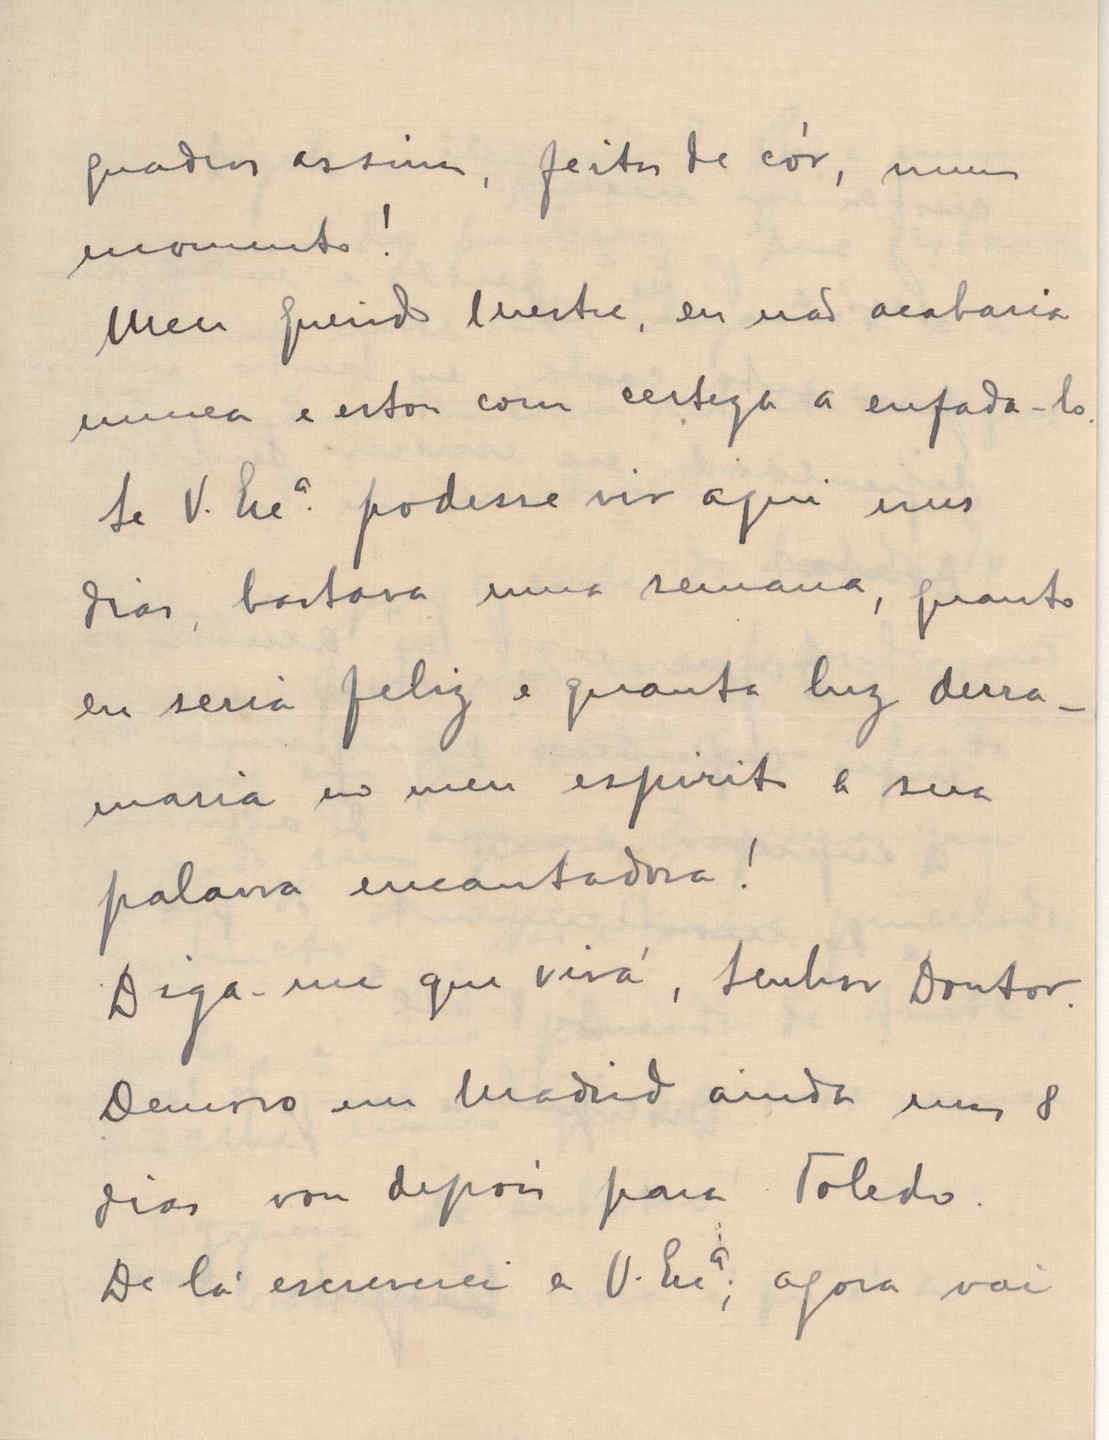 quadros assim, feitos de cór, num
momento!
Meu querido Mestre, eu não acabaria
nunca e estou com certeza a enfada-lo.
Se V. Exª. podesse vir aqui uns
dias, bastava uma semana, quanto
eu seria feliz e quanta luz derra-
maria no meu espirito a sua
palavra encantadora!
Diga-me que virá, Senhor Doutor.
Demoro em Madrid ainda uns 8
dias vou depois para Toledo.
De lá escreverei a V. Exª; agora vai